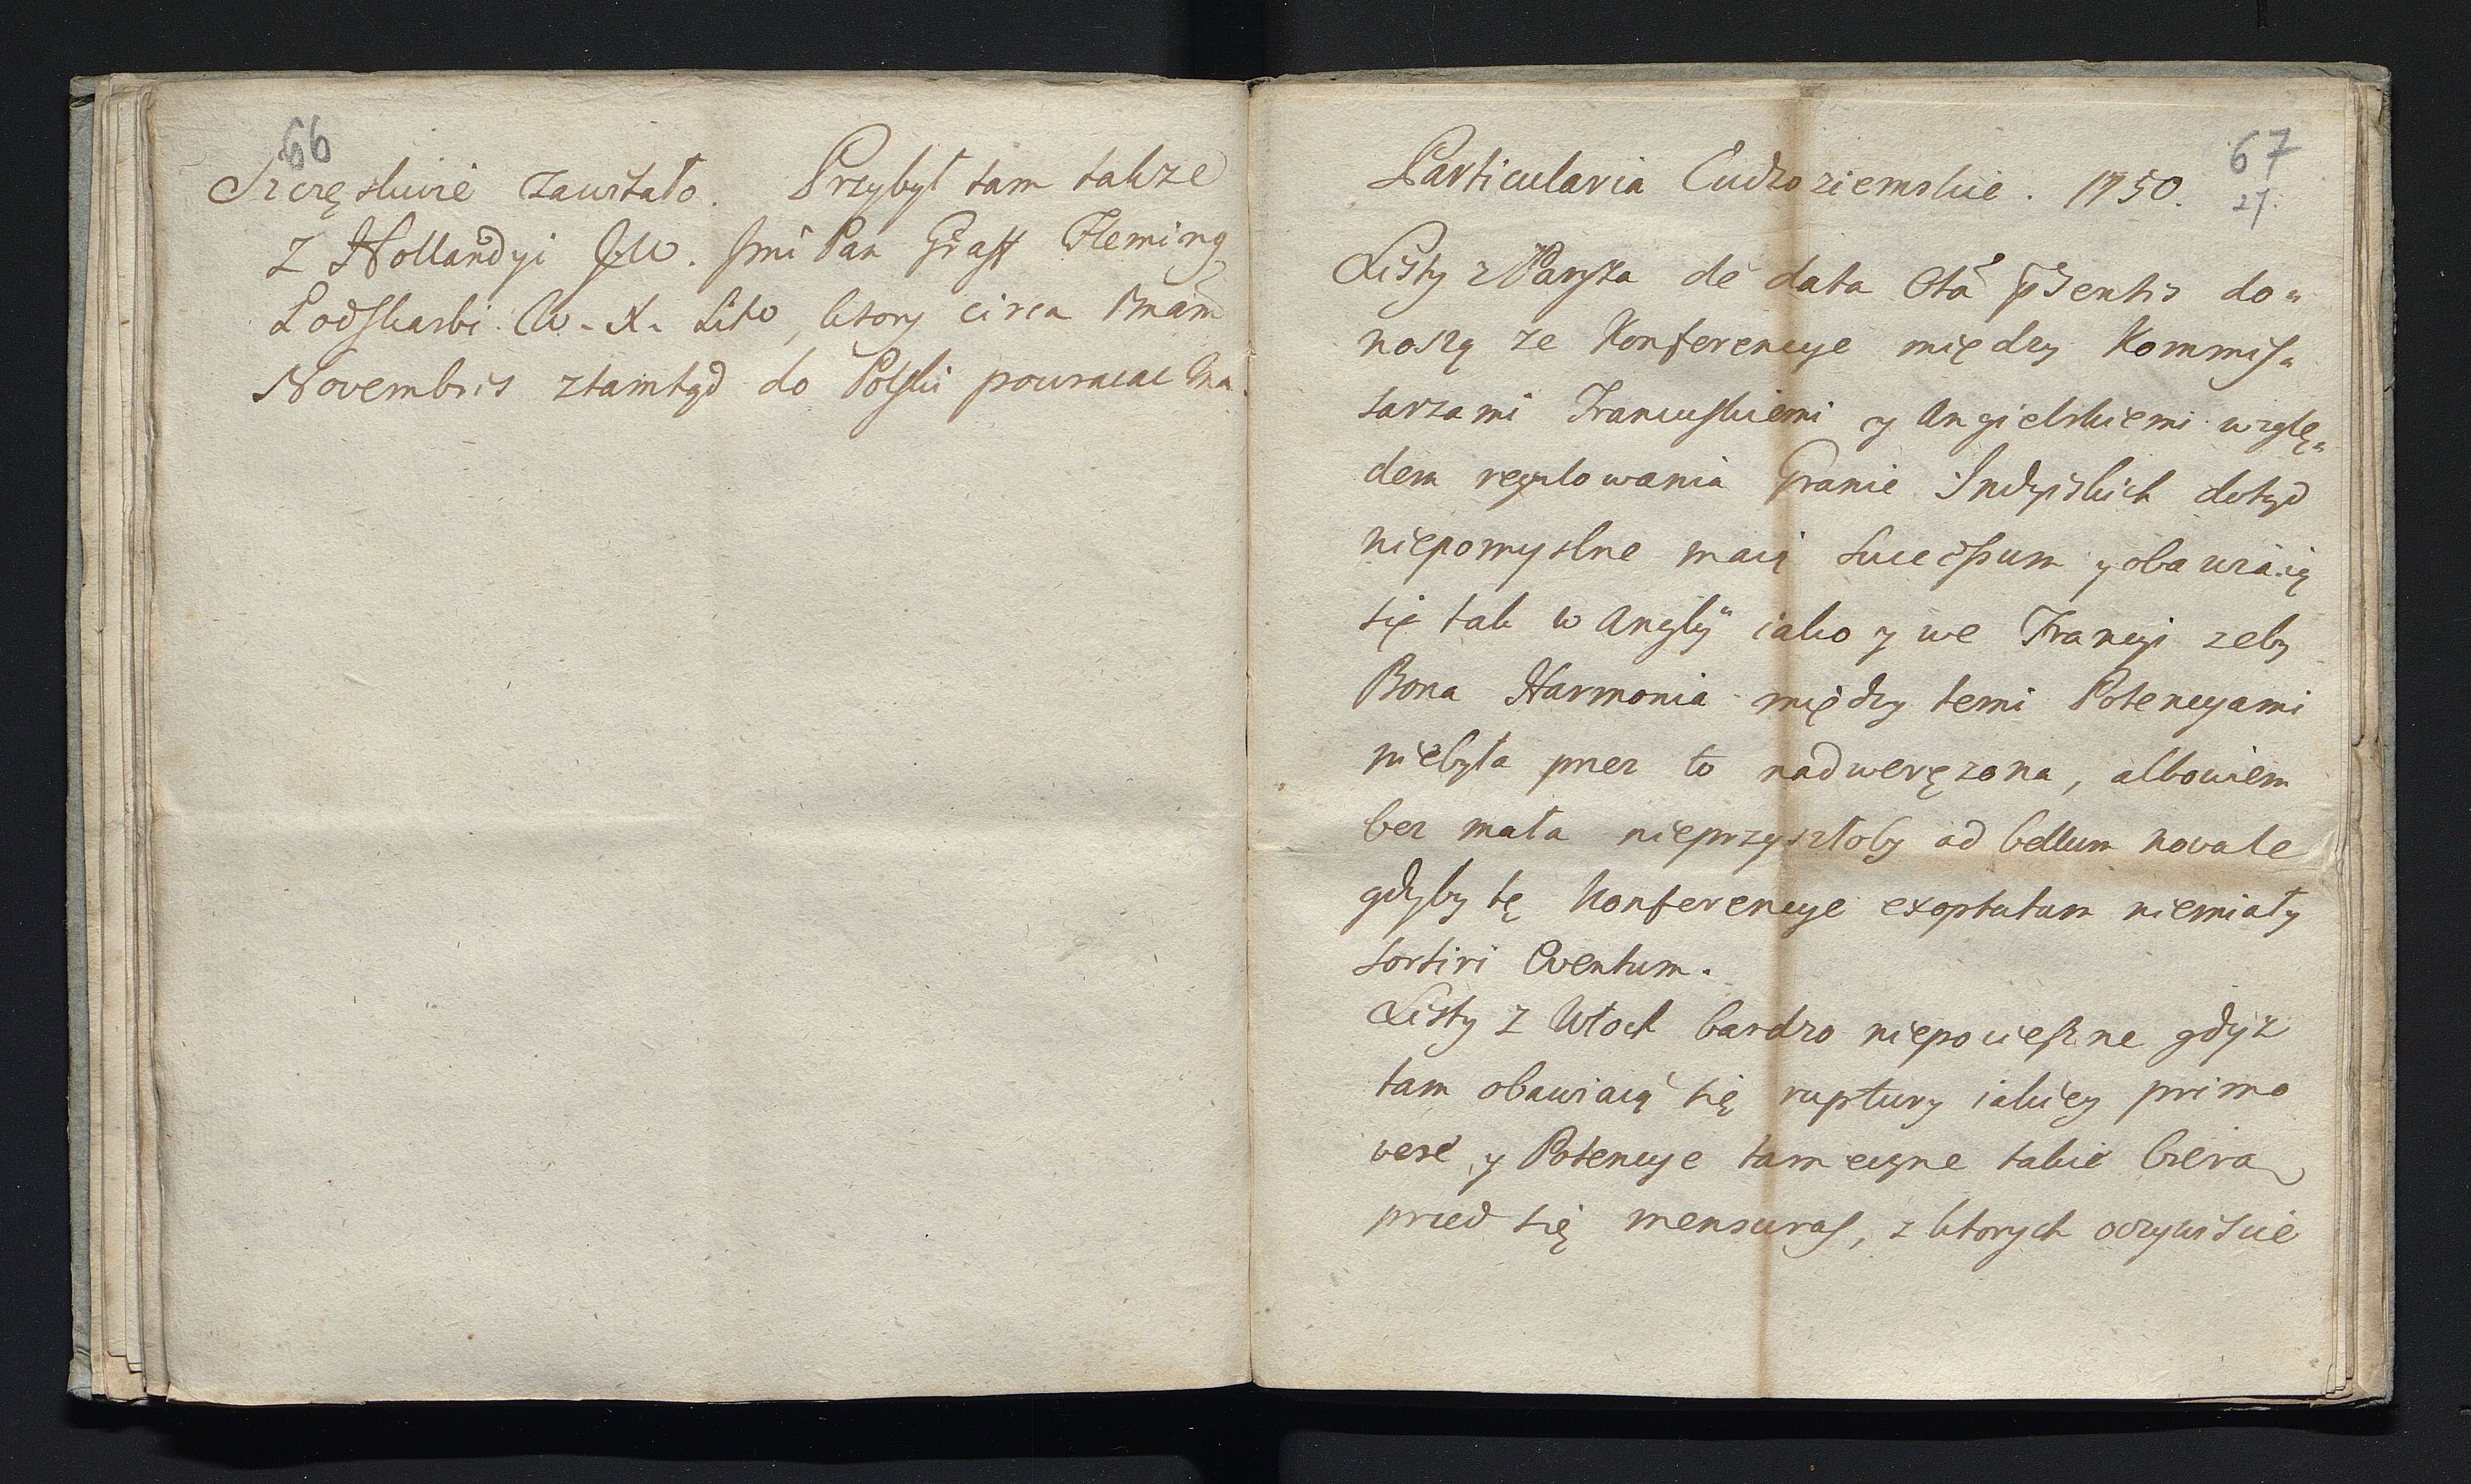 66
Szczęsliwie zawitało. Przybył tam takze
z Hollandyi J.W. Jmi Pan Graff Fleming
Podskarbi W. X. Litto, ktory circa
Novembris ztamtąd do Polski powracac ma.
67
27.
Particularia Cudzoziemskie. 1750.
Listy z Paryża de data 6ta p̃sentis do„
noszą ze Konferencye między Kommis„
sarzami Francuskiemi y Angielskiemi wzglę„
dem regulowania Granic Indyiskich dotąd
niepomyslne maią successum y obawiaią
się tak w Anglÿ iako y we Francyi zeby
Bona Harmonia między temi Potencyami
niebyła przez to nadweręzona, albowiem
bez mała nieprzyszłoby ad bellum novale
gdyby tę Konferencye exoptatum niemiały
sortiri Eventum.
Listy z Włoch bardzo niepocieszne gdyz
tam obawiaią się ruptury iakiey primo
vere y Potencye tameczne takie biera
przed się mensuras, z ktorych oczywiscie